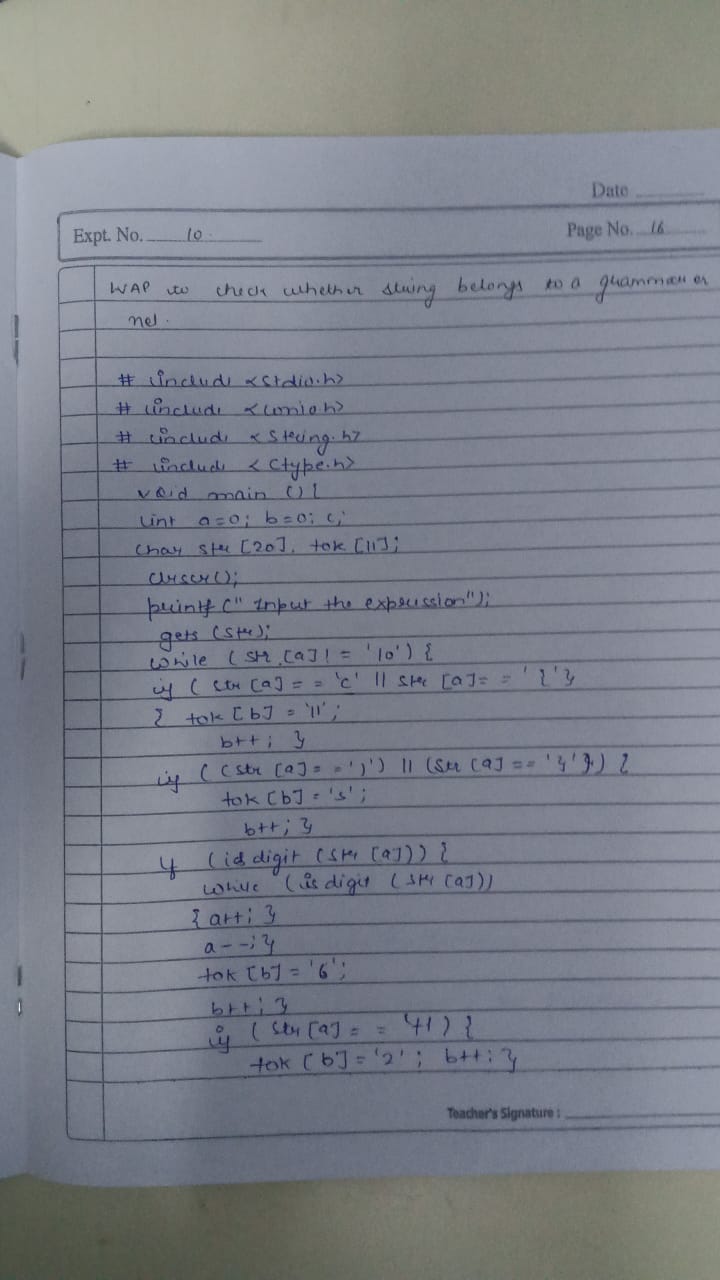 Date
Expt. No. 10.
Page No. 16
WAP to check whether string belongs to a grammar or
not.
# include <stdio.h>
# include <conio.h>
# include <string.h>
# include <ctype.h>
void main () {
int a=0; b=0; c;
char str [20], tok [11];
clrscr();
printf (" Input the expression");
gets (str);
while ( str [a] != '\0') {
if ( str [a] = = '(' || str [a] = = '{' }
{ tok [b] = '11';
b++; }
if ( ( str [a] = = ')') || (str [a] == '}' }) {
tok [b] = '5';
b++; }
if (is digit (str [a])) {
while (is digit (str [a]))
{ a++; }
a--; }
tok [b] = '6';
b++; }
if ( str [a] = = '+1 ) {
tok [b] = '2'; b++; }
Teacher's Signature :